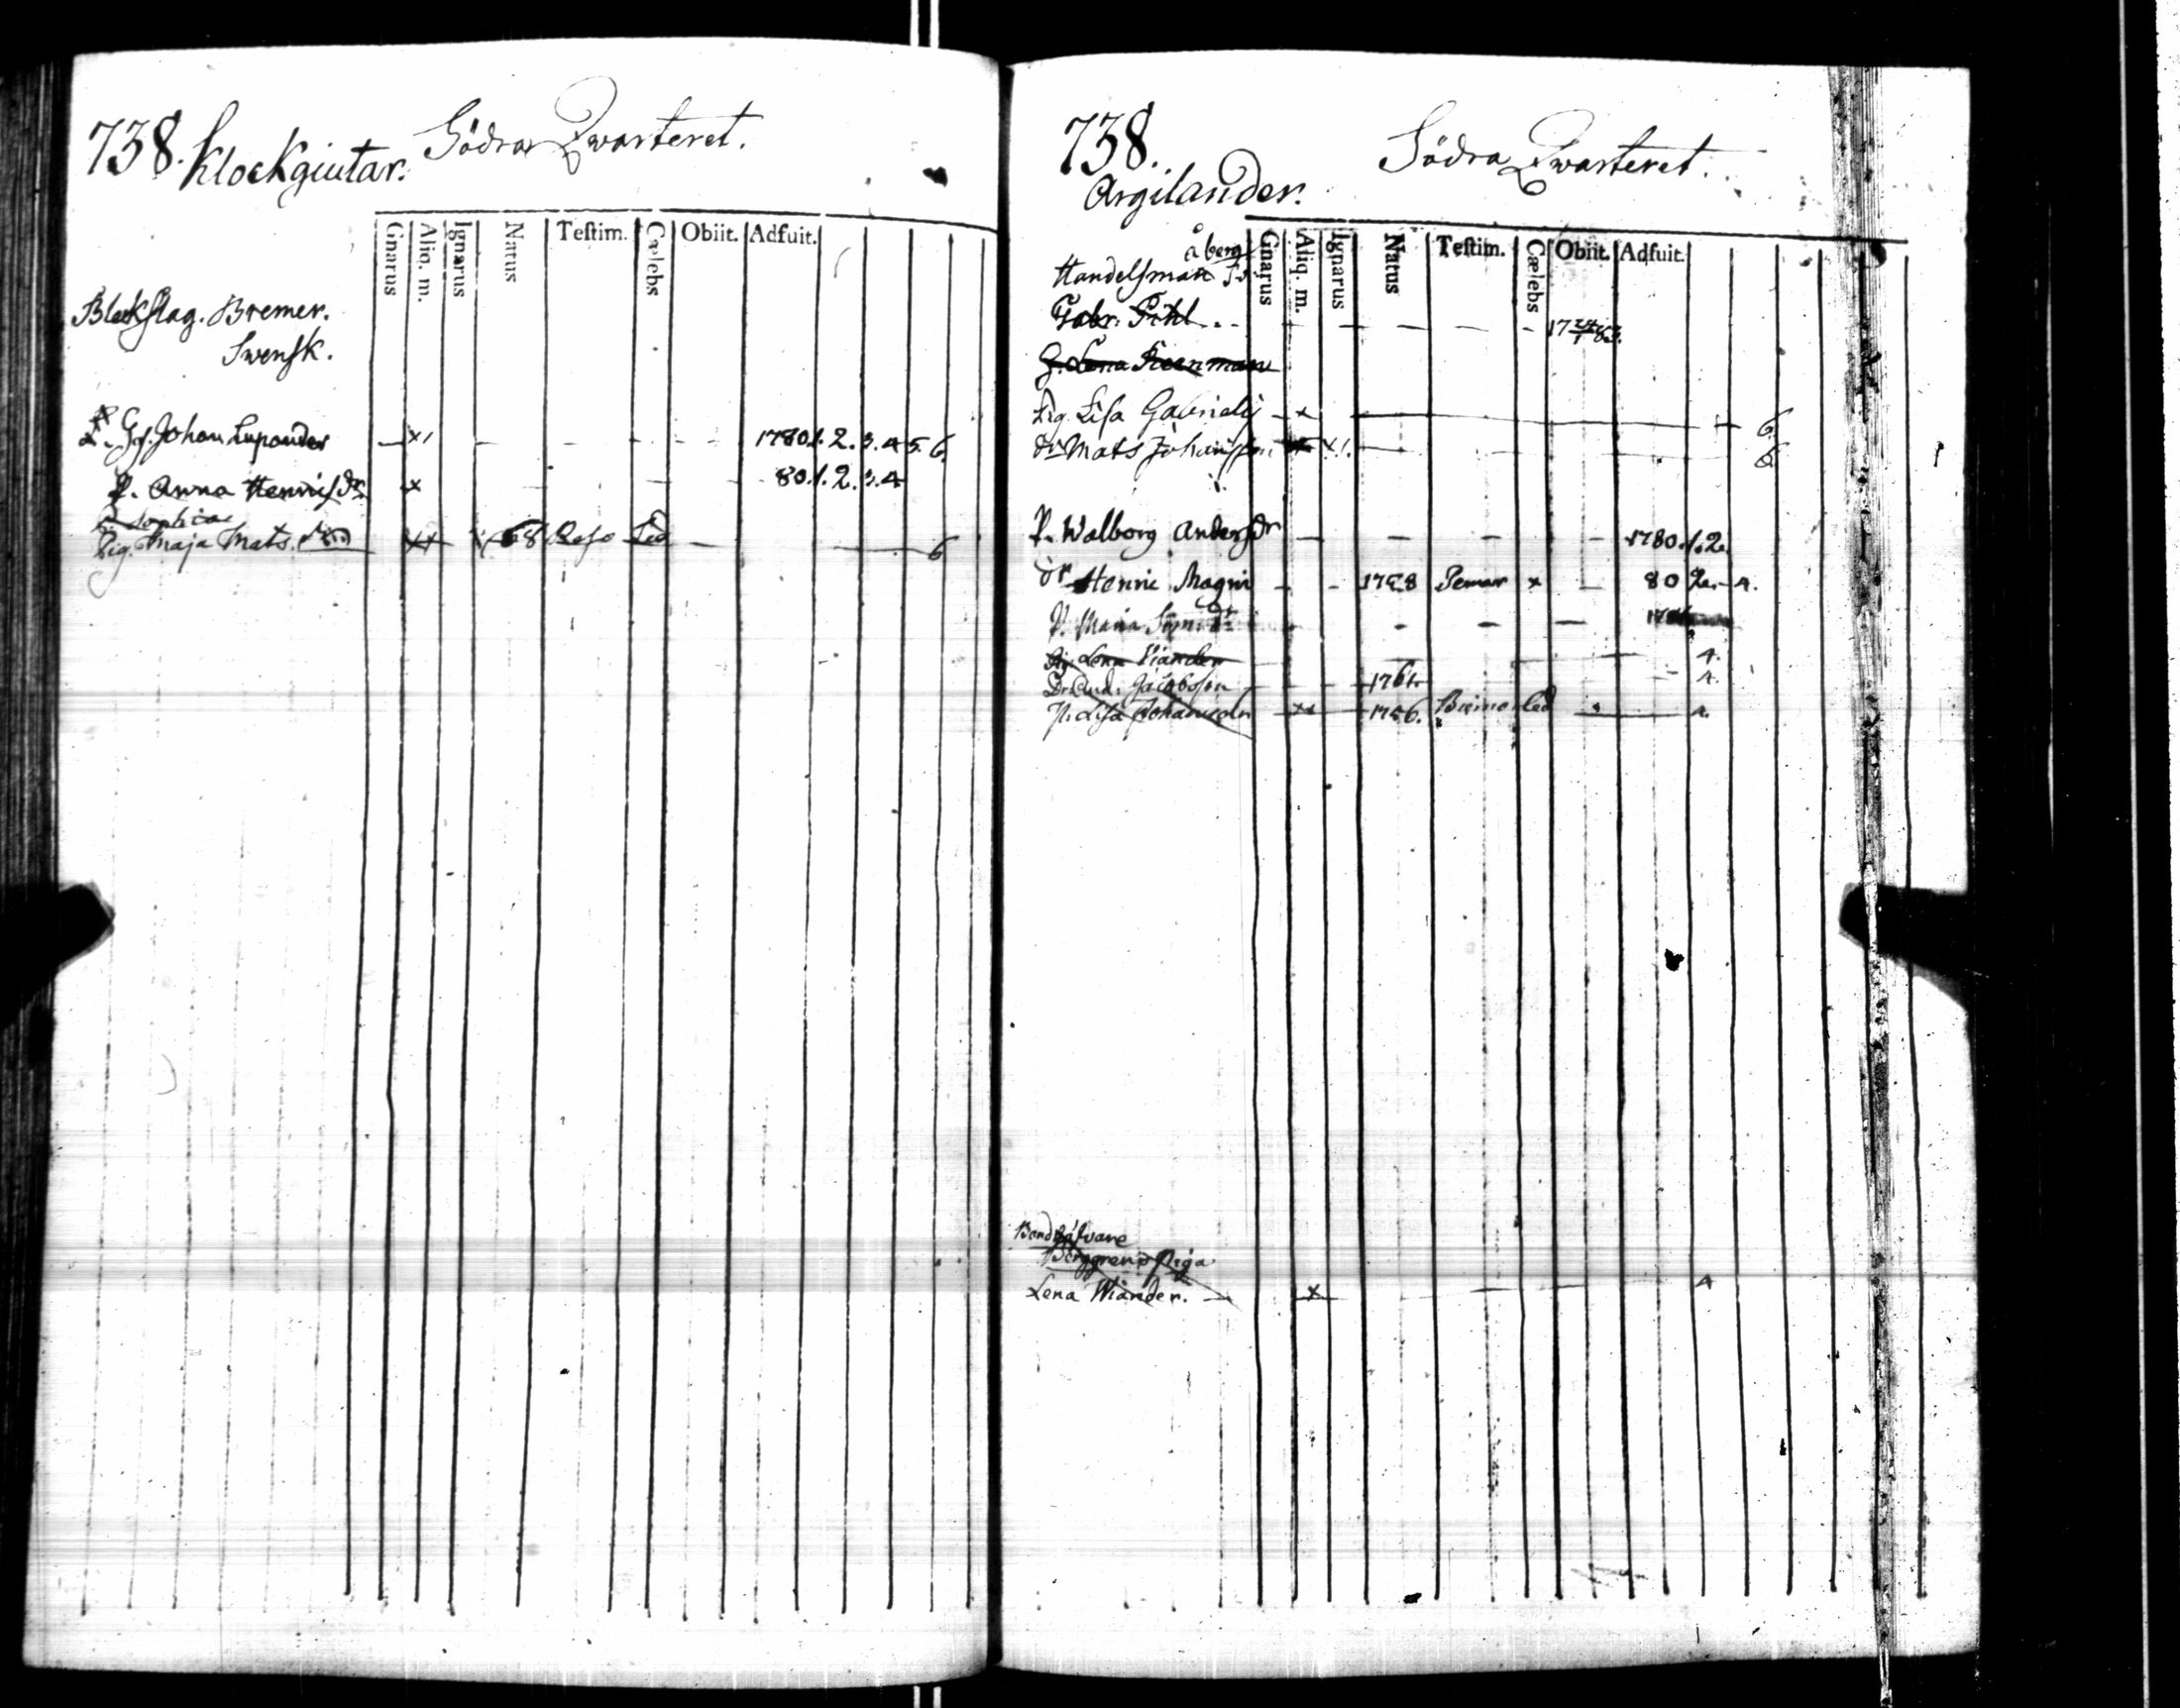 738. Klockgiutar. Södra Qwarteret.
Gnarus Aliq. m. Ignarus Natus Testim. Cælebs Obiit. Adfuit.
Bleckslag. Bremer.
Swensk.
Gs. Johan Lupander — x1 — — — — — — 1780.1.2.3.4.5.6.
P. Anna Henricsdr x — — — 80.1.2.3.4
Sophia
Pig. Maja Mats. 68 Reso Led — — 6
738. Södra Qwarteret.
Argilander.
Gnarus Aliq. m. Ignarus Natus Testim. Cælebs Obiit. Adfuit.
åberg
Handelsman
Gabr. Pihl. — — — — — 17 24/1 83.
Lena Keenman
Pig. Lisa Gabrielsj — x — 6.
Dr Mats Johansson x1. — 6.
P. Walborg Andersdr — — — — 1780.1.2.
dr Henric Magni — — 1758 Pemar x — 80 2. — 4.
P. Maria Sim. dr — — —
Pig. Lena Viander — — 4.
Dr. And. Jacobsson — — 1761. — 4.
P. Lisa Johansdr — xx — 1756. Bierno led — 4.
Bandwäfvare
Berggrens Piga
Lena Wiander. — x — — — 4